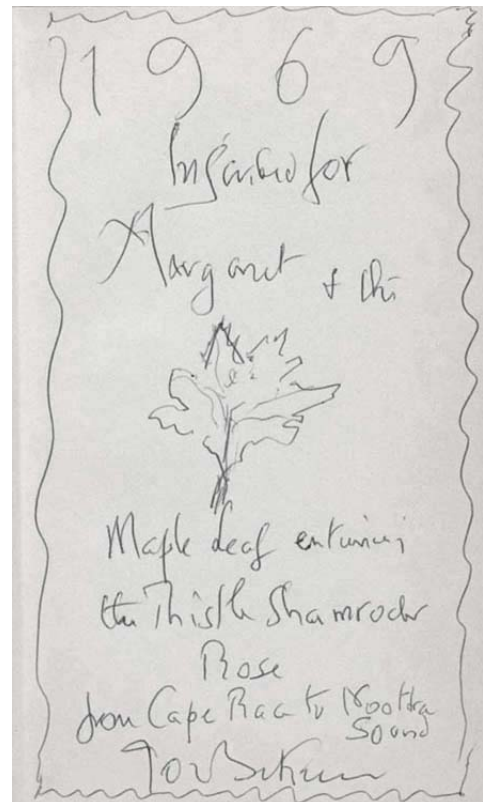 1969
Inscribed for
Margaret & this
Maple Leaf entwining
the Thistle Shamrock
Rose
from Cape Race to Nootka
Sound